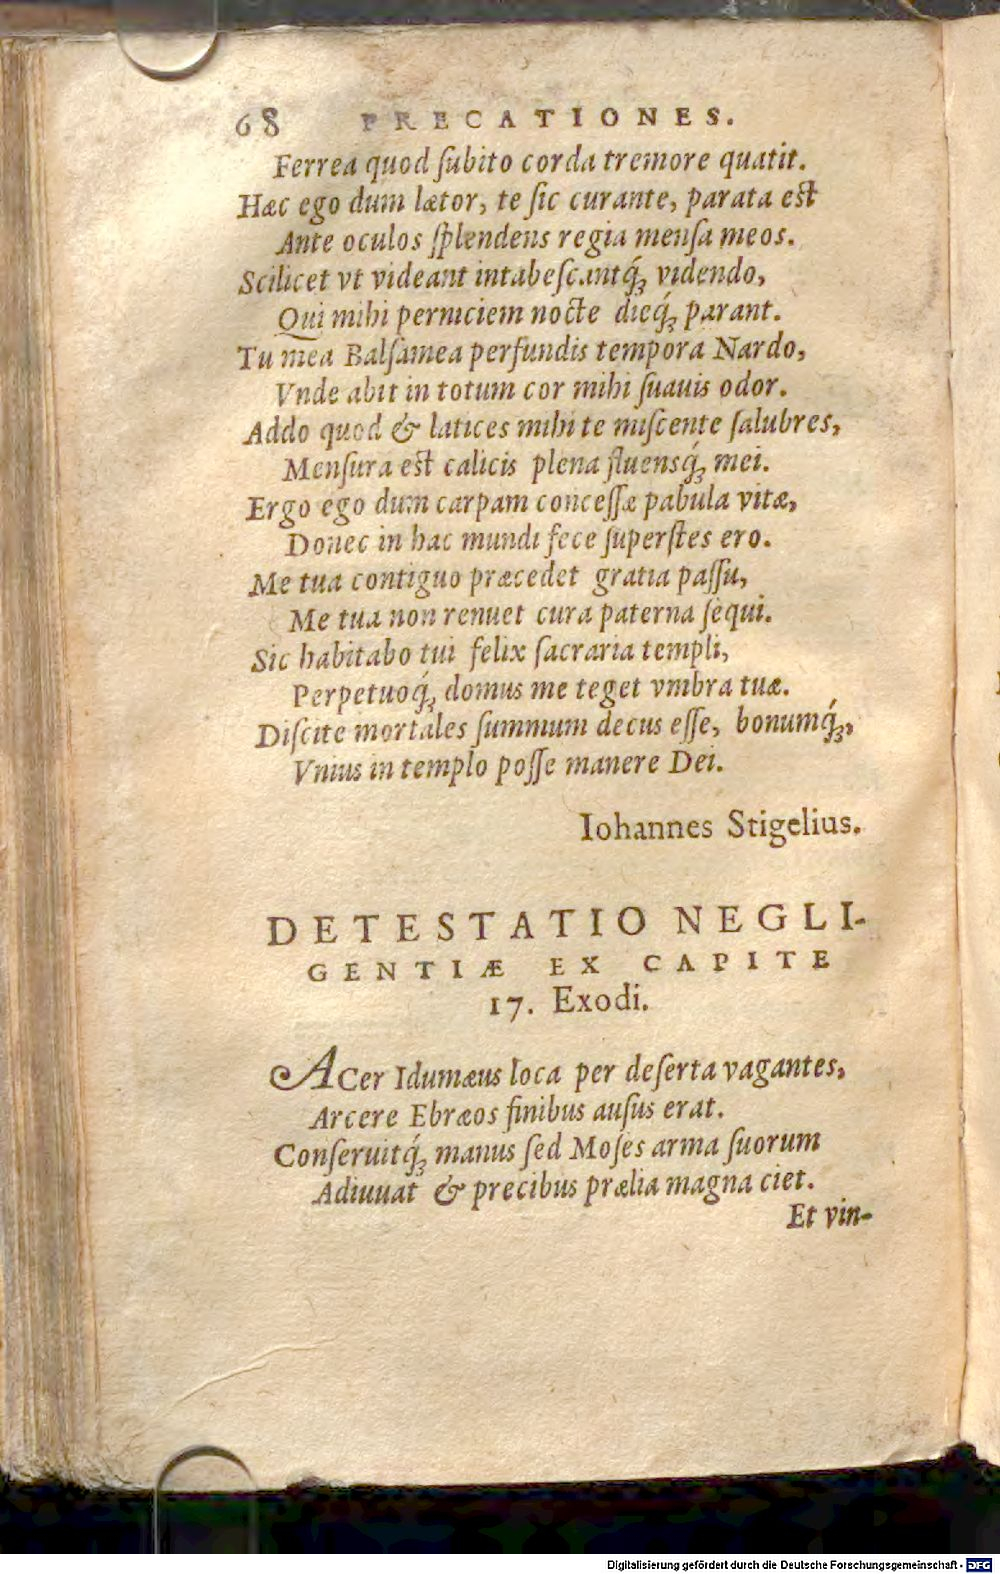 68 PRECATIONES.
Ferrea quod ſubito corda tremore quatit.
Hæc ego dum lætor, te ſic curante, parata eſt
Ante oculos ſplendens regia menſa meos.
Scilicet vt videant intabeſcantq́ꝫ videndo,
Qui mihi perniciem nocte dieq́ꝫ parant.
Tu mea Balſamea perfundis tempora Nardo,
Vnde abit in totum cor mihi ſuauis odor.
Addo quod & latices mihi te miſcente ſalubres,
Menſura eſt calicis plena fluensq́ꝫ mei.
Ergo ego dum carpam conceſſæ pabula vitæ,
Donec in hac mundi fece ſuperſtes ero.
Me tua contiguo præcedet gratia paſſu,
Me tua non renuet cura paterna ſequi.
Sic habitabo tui felix ſacraria templi,
Perpetuoq́ꝫ domus me teget vmbra tuæ.
Diſcite mortales ſummum decus eſſe, bonumq́ꝫ,
Vnius in templo poſſe manere Dei.
Iohannes Stigelius.
DETESTATIO NEGLI-
GENTIÆ EX CAPITE
17. Exodi.
ACer Idumæus loca per deſerta vagantes,
Arcere Ebræos finibus auſus erat.
Conſeruitq́ꝫ manus ſed Moſes arma ſuorum
Adiuuat & precibus prælia magna ciet.
Et vin-
Digitalisierung gefördert durch die Deutsche Forschungsgemeinschaft - DFG